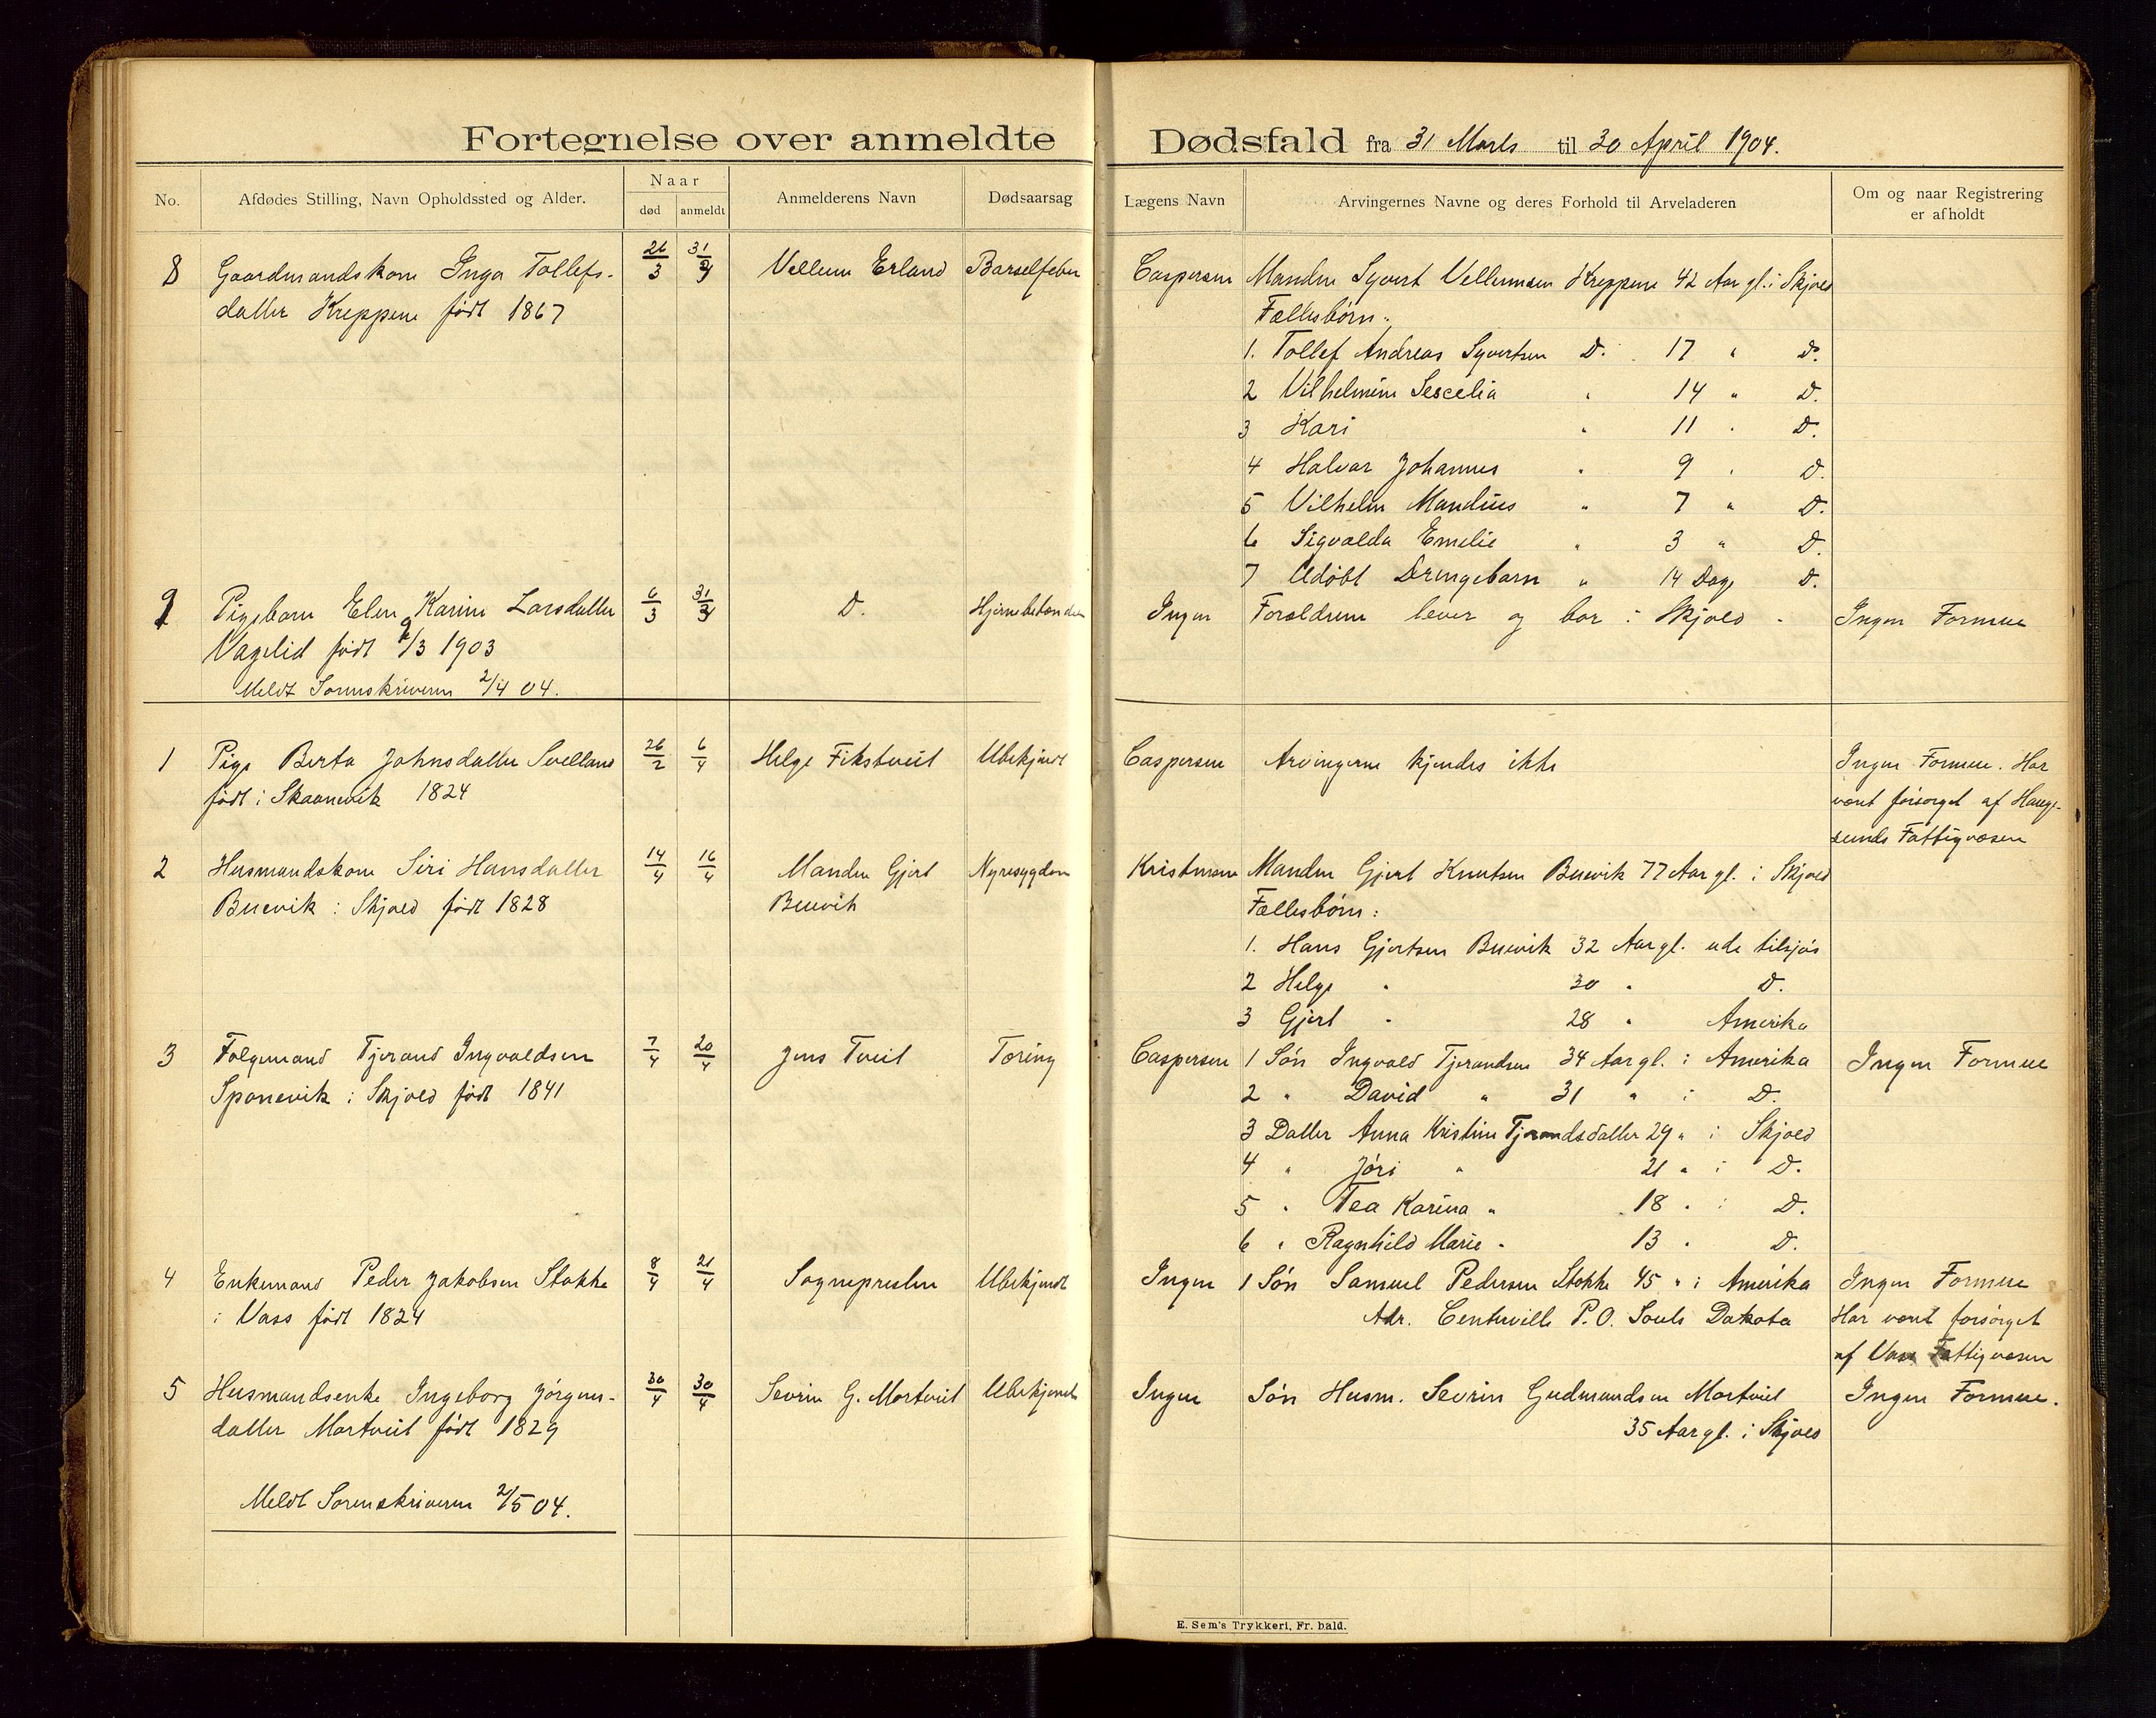 Fortegnelse over anmeldte Dødsfald fra 31 Marts til 30 April 1904.
No. Afdødes Stilling, Navn Opholdssted og Alder. Naar død anmeldt Anmelderens Navn Dødsaarsag Lægens Navn Arvingernes Navne og deres Forhold til Arveladeren Om og naar Registrering er afholdt
8 Gaardmandskone Inga Tollefs- 26/3 31/3 Vellum Erland Barselfeber Caspersen Manden Syvert Vellumsen Kreppene 42 Aar gl. i Skjold
datter Kreppene født 1867 Fællesbørn:
1. Tollef Andreas Syvertsen D. 17 " D.
2 Vilhelmine Sescelia " 14 " D.
3 Kari " 11 " D.
4 Halvar Johannes " 9 " D.
5 Vilhelm Mandius " 7 " D.
6 Sigvalda Emelie " 3 " D.
7 Udøbt Drengebarn " 14 Dage D.
9 Pigebarn Elen Karine Larsdatter 6/3 31/3 D. Hjernebetændelse Ingen Forældrene lever og bor i Skjold. Ingen Formue
Vagelid født 9/3 1903
Meldt Sorenskriveren 2/4 04.
1 Pige Berta Johnsdatter Svelland 26/2 6/4 Helge Fikstveit Ubekjendt Caspersen Arvingerne kjendes ikke Ingen Formue. Har
født i Skaanevik 1824 været forsørget af Hauge-
sunds Fattigvæsen
2 Husmandskone Siri Hansdatter 14/4 16/4 Manden Gjert Nyresygdom Kristensen Manden Gjert Knutsen Buevik 77 Aar gl. i Skjold
Buevik i Skjold født 1828 Buevik Fællesbørn:
1. Hans Gjertsen Buevik 32 Aar gl. ude tilsjøs
2 Helge " 30 " D.
3 Gjert " 28 " Amerika
3 Følgemand Tjerand Ingvaldsen 7/4 20/4 Jens Tveit Tæring Caspersen 1 Søn Ingvald Tjerandsen 34 Aar gl. i Amerika Ingen Formue
Sponevik i Skjold født 1841 2 " David " 31 " i D.
3 Datter Anna Kristine Tjerandsdatter 29 " i Skjold
4 " Jóri " 21 " i D.
5 " Tea Karina " 18 " i D.
6 " Ragnhild Marie " 13 " D.
4 Enkemand Peder Jakobsen Stakke 8/4 21/4 Sognepresten Ubekjendt Ingen 1 Søn Samuel Pedersen Stokke 45 " i Amerika Ingen Formue
i Vass født 1824 Adr. Centerville P.O. South Dakota Har været forsørget
af Vass Fattigvæsen
5 Husmandsenke Ingeborg Jørgens- 30/4 30/4 Sevrin G. Mortveit Ubekjendt Ingen Søn Husm. Sevrin Gudmundsen Mortveit Ingen Formue.
datter Mortveit født 1829 35 Aar gl. i Skjold
Meldt Sorenskriveren 2/5 04.
E. Sem's Trykkeri, Fr. hald.